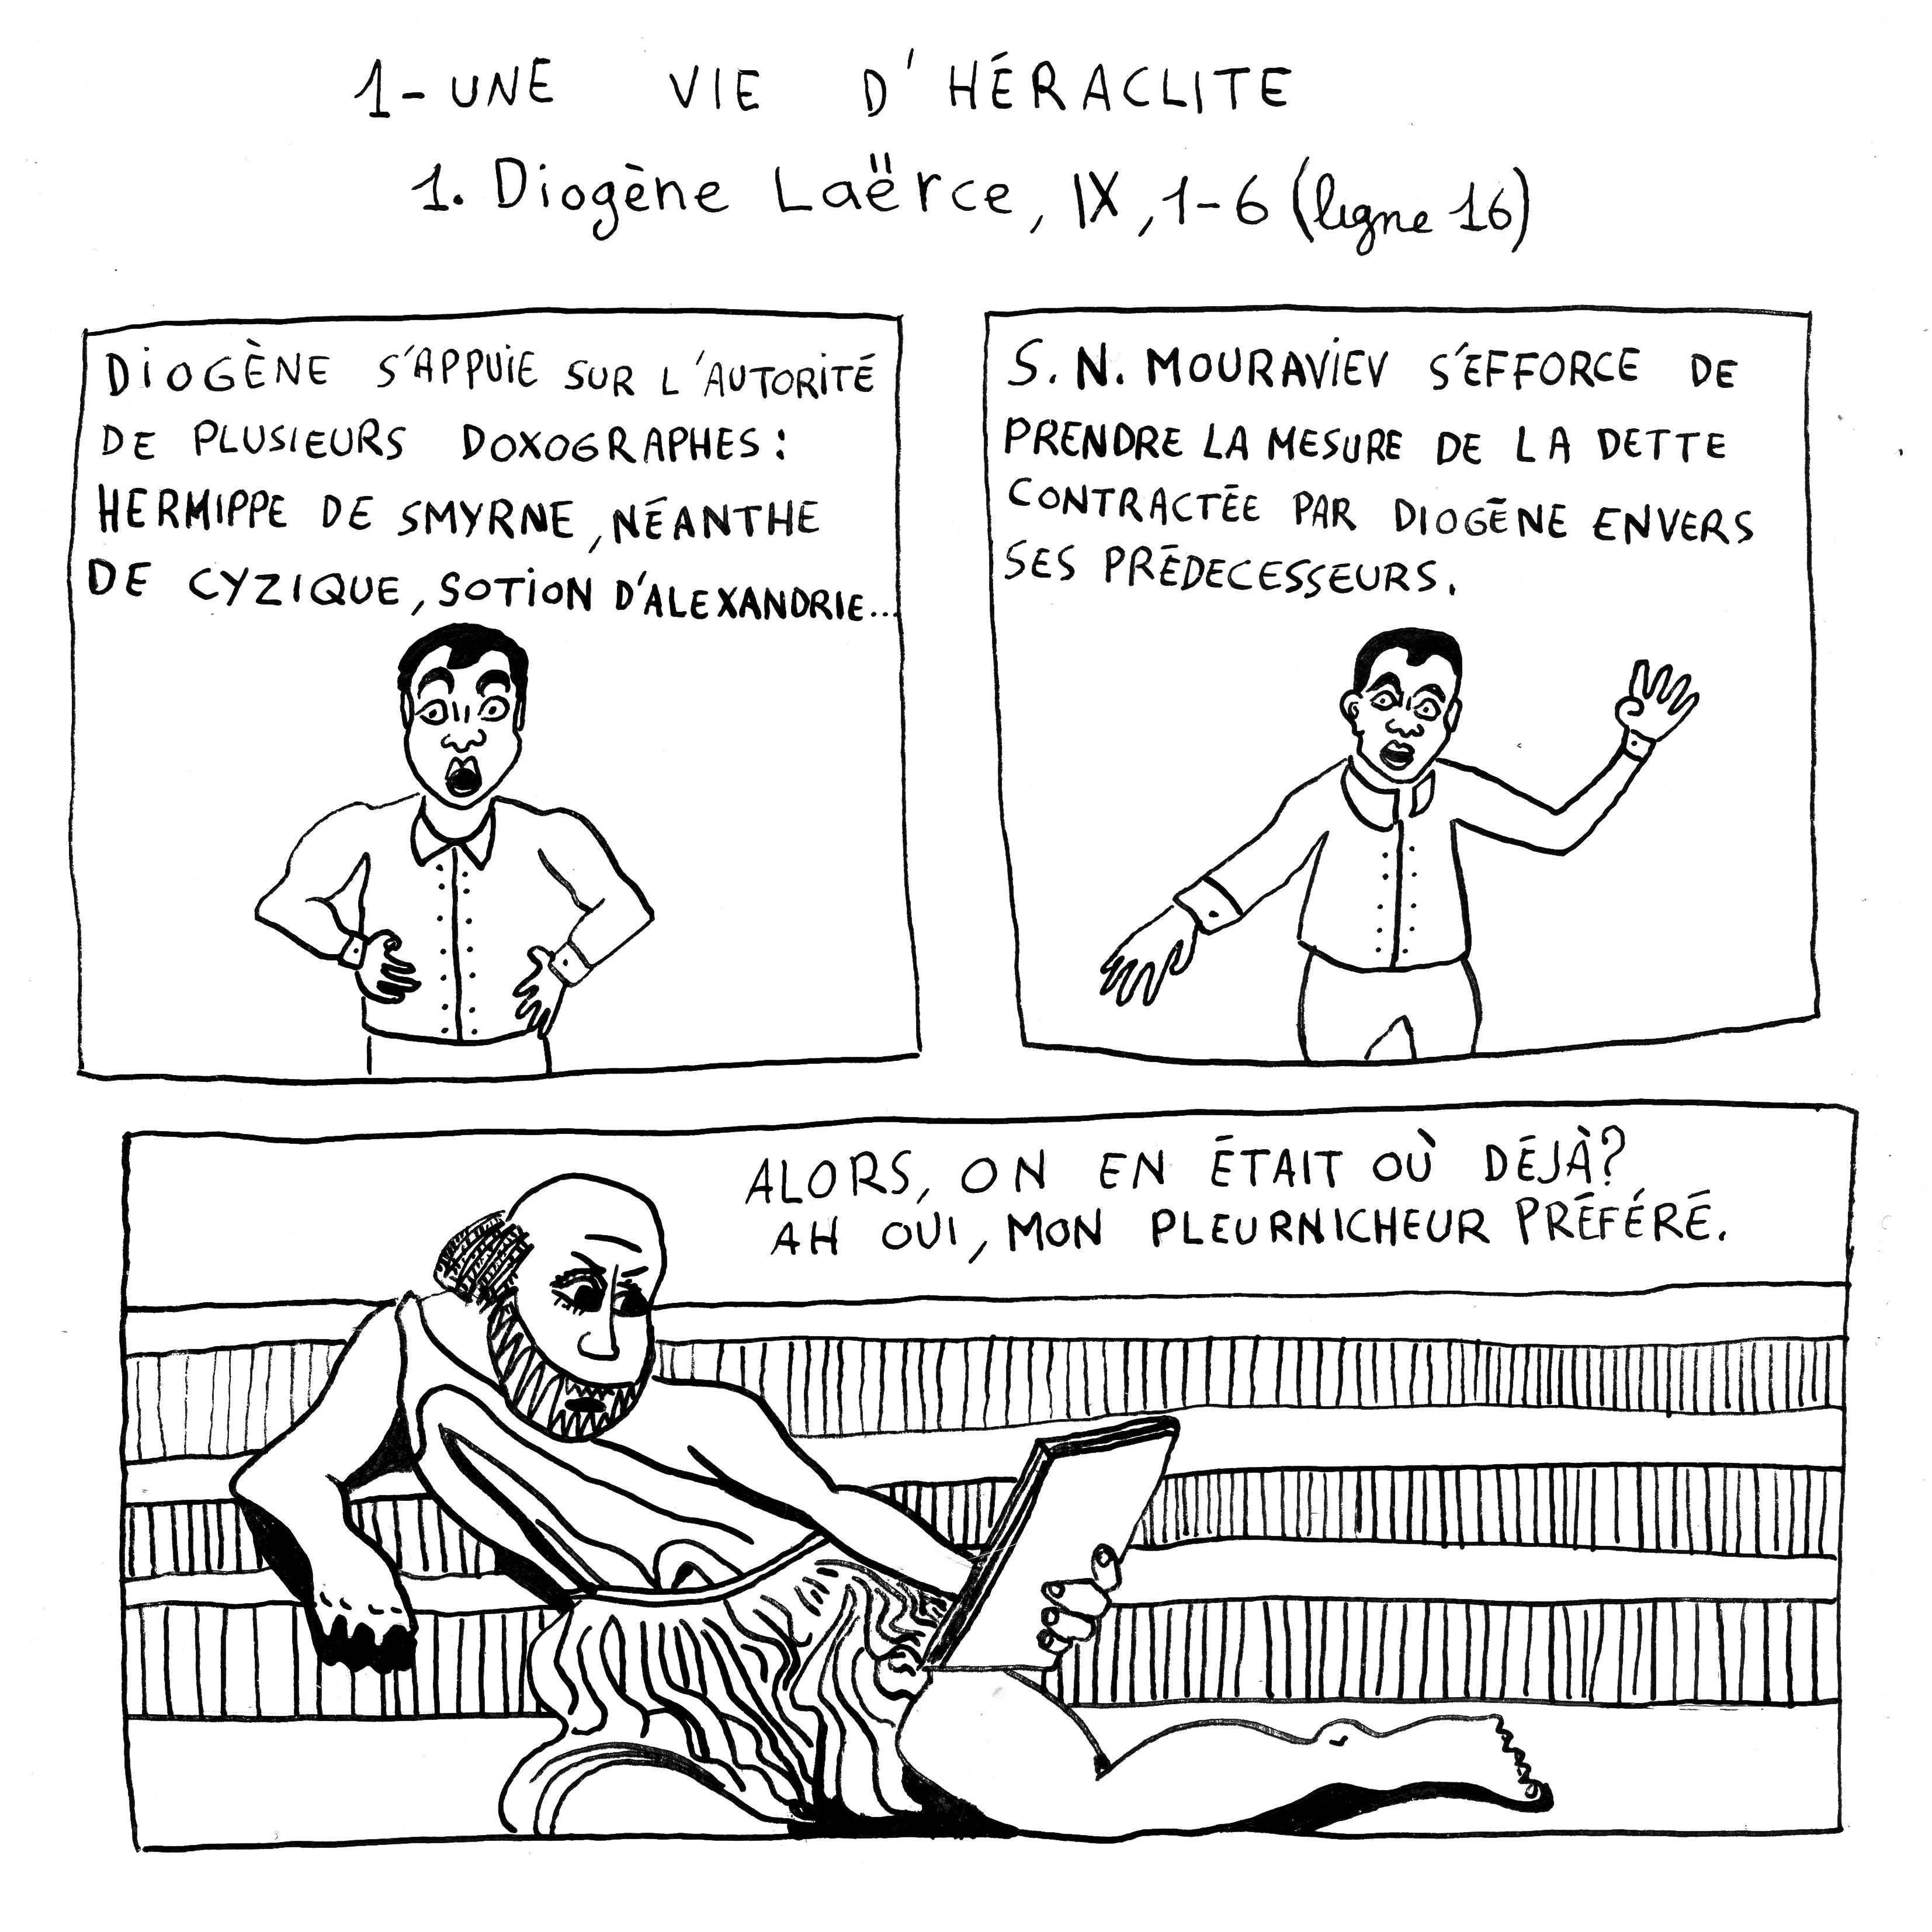 1- UNE VIE D'HÉRACLITE
1. Diogène Laërce, IX, 1-6 (ligne 16)
DIOGÈNE S'APPUIE SUR L'AUTORITÉ
DE PLUSIEURS DOXOGRAPHES :
HERMIPPE DE SMYRNE, NÉANTHE
DE CYZIQUE, SOTION D'ALEXANDRIE...
S. N. MOURAVIEV S'EFFORCE DE
PRENDRE LA MESURE DE LA DETTE
CONTRACTÉE PAR DIOGÈNE ENVERS
SES PRÉDECESSEURS.
ALORS, ON EN ÉTAIT OÙ DÉJÀ?
AH OUI, MON PLEURNICHEUR PRÉFÉRÉ.